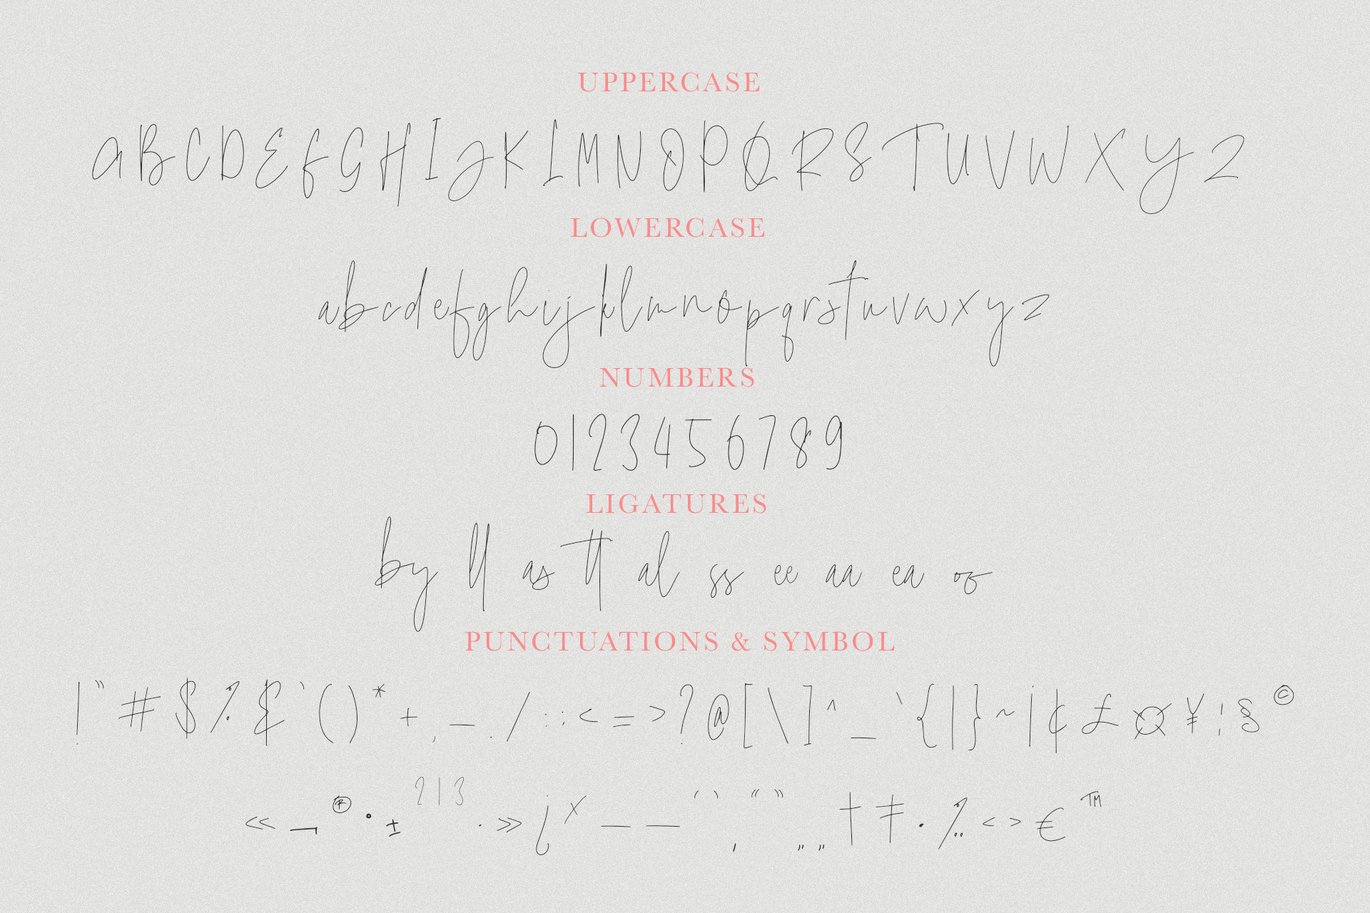 UPPERCASE
A B C D E F G H I J K L M N O P Q R S T U V W X Y Z
LOWERCASE
a b c d e f g h i j k l m n o p q r s t u v w x y z
NUMBERS
0 1 2 3 4 5 6 7 8 9
LIGATURES
by ll as tt al ss ee aa ea of
PUNCTUATIONS & SYMBOL
! " # $ % & ' ( ) * + , - . / : ; < = > ? @ [ \ ] ^ _ ` { | } ~ ¡ ¢ £ ¤ ¥ ¦ § ©
« ¬ ® ° ± ² ¹ ³ · » ¿ × – — ‘ ’ ‚ “ ” „ „ † ‡ • ‰ ‹ › € ™